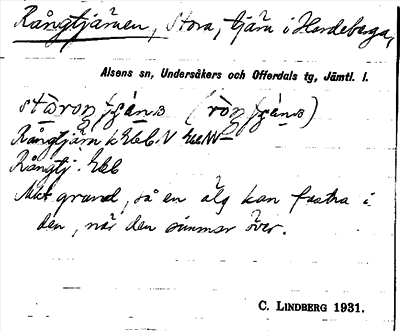 Rångtjärnen, Stora, tjärn i Hordeberga,
Alsens sn, Undersåkers och Offerdals tg, Jämtl. l.
Rångtjärn k Ekb. V
Rångtj. Ekb
Mkt grund, så en älg kan fastna i
den, när den simmar över.
C. LINDBERG 1931.